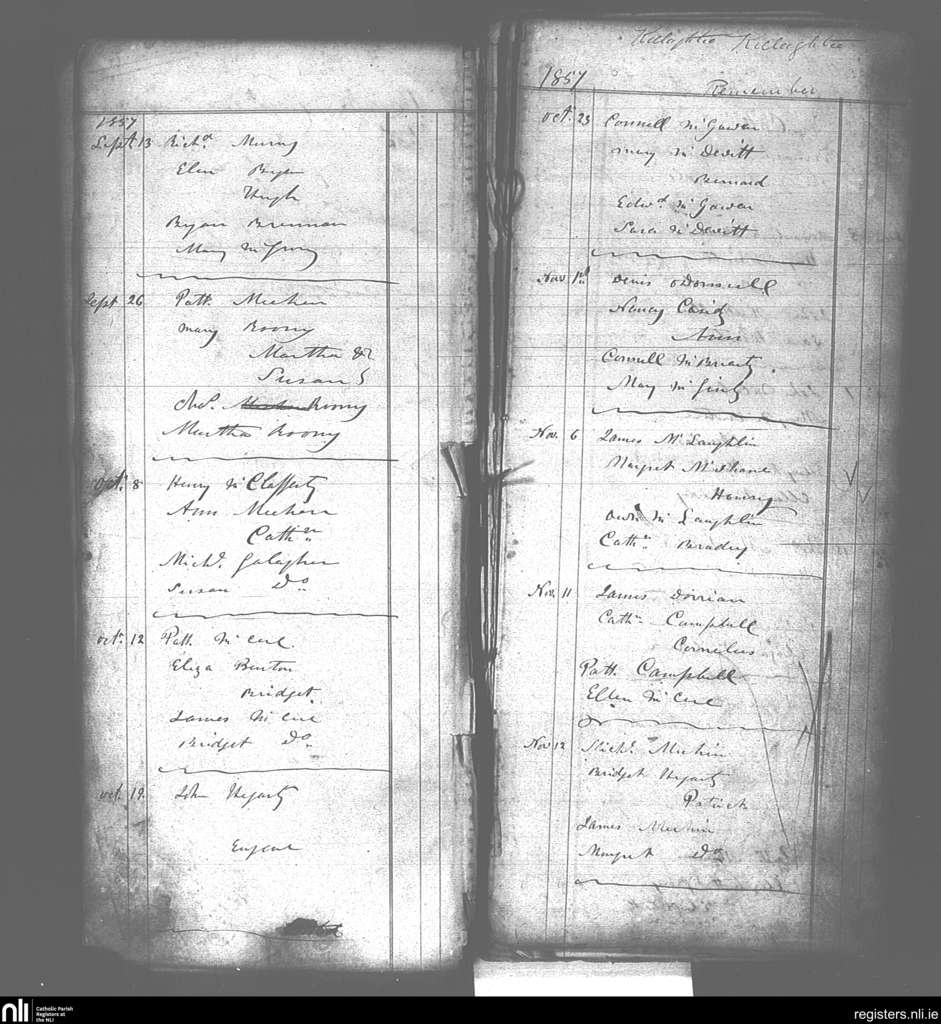 1857
Sept. 13 Richd. Murray
Elen
Hugh
Bryan Brennan
Mary McGinty
Sept 26 Patt. Meehan
Mary Roony
Martha &
Susan
Roony
Martha Roony
Oct. 8 Henry McClafferty
Ann Meehan
Cathn.
Michl. Galagher
Susan Do.
Oct. 12 Patt. McCue
Eliza Benton
Bridget
James McCue
Bridget Do.
Oct. 19. John Hegarty
Eugene
Killaghtee Killaghtee
1857
Remember
Oct. 23 Connell McGowan
Mary McDevitt
Bernard
Edwd. McGowan
Sara McDevitt
Nov. 1st Denis ODonnell
Nancy
Ann
Connell McBrearty
May McGinty
Nov. 6 James McLaughlin
Margret McShane
Henry
Owen McLaughlin
Cathn. Bradey
Nov. 11 James Dorrian
Cathn. Campbell
Cornelius
Patt. Campbell
Ellen McCue
Nov 12 Michl. Meehin
Bridget Hegarty
Patrick
James Meehin
Margret Do.
nli
Catholic Parish
Registers at
the NLI
registers.nli.ie